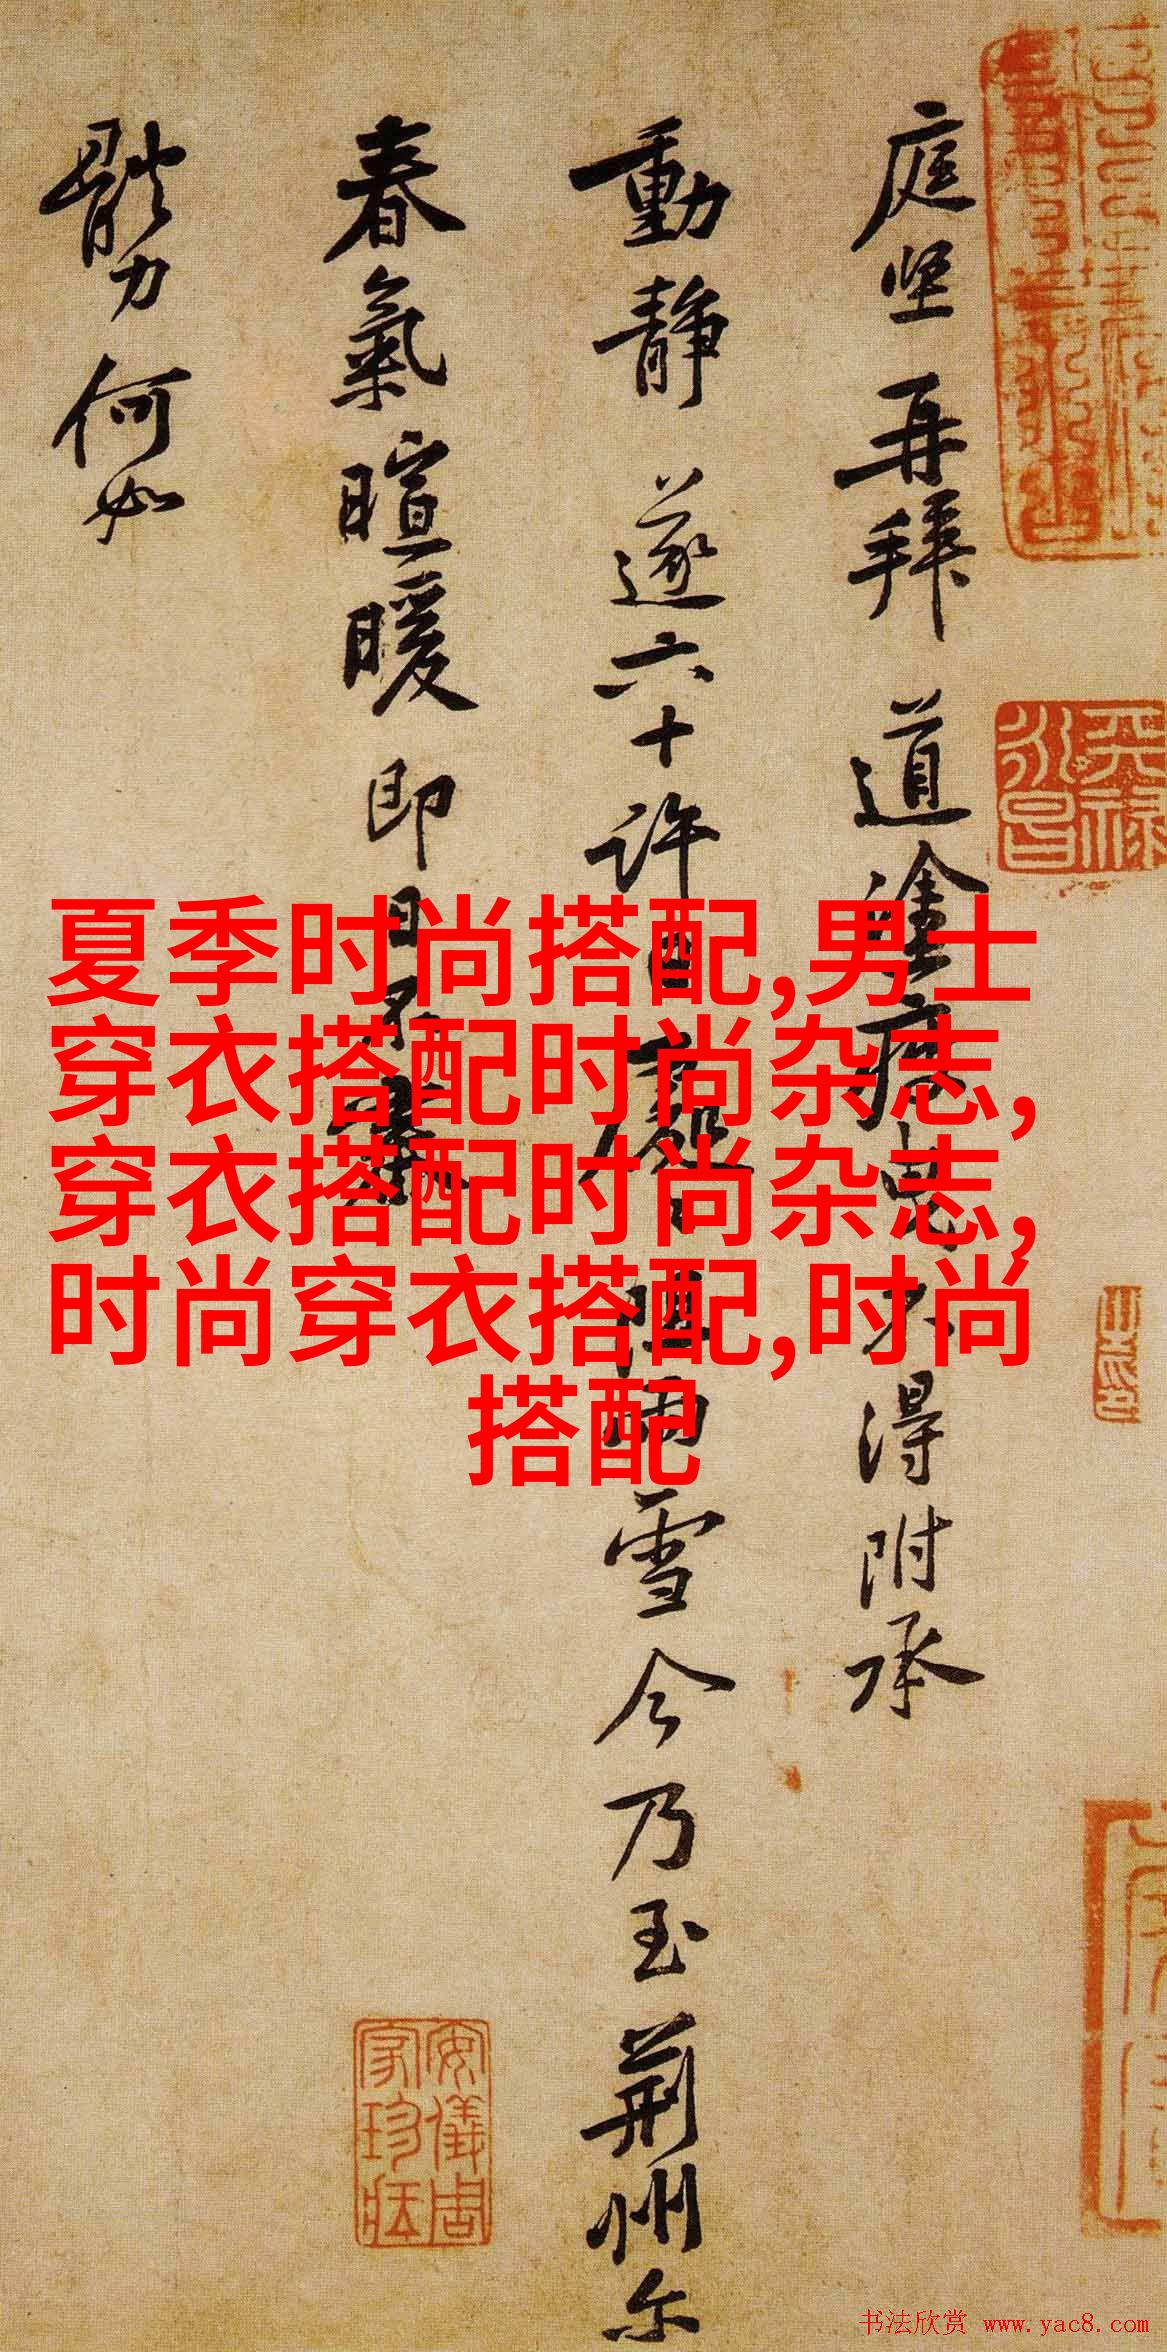 庭坚再拜道塗不得附承
動静遂六十許陰雨雪今乃至荆州尔
春氣暄暖即日不
體力何如
夏季时尚搭配,男士
穿衣搭配时尚杂志,
穿衣搭配时尚杂志,
时尚穿衣搭配,时尚
搭配
天禄
永昌
安儀周
家珍藏
书法欣赏 www.yac8.com